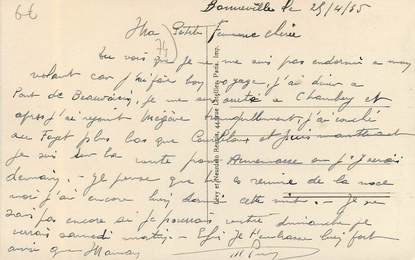 6€
Bonneville le 29/4/55
Ma Petite Femme chérie
74
tu vois que je ne me suis pas endormi à mon
volant car j'ai fait bon voyage, j'ai diner à
Pont de Beauvoisin, je me suis arrêté à Chambéry et
après j'ai rejoint Megève tranquillement, j'ai couché
au Fayet plus bas que Combloux et puis maintenant
je suis sur la route pour Annemasse où je serai
demain. - Je pense que tu es remise de la noce
moi j'ai encore bien dormi cette nuit. - Je ne
sais pas encore si je pourrais rentrer dimanche je
verrai samedi matin. - Je t'embrasse bien fort
ainsi que Maman
Lévy et Neurdein Réunis, 44, rue Letellier, Paris. Imp.